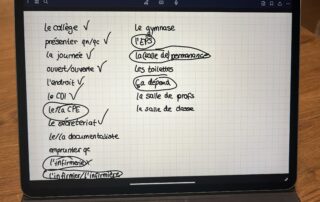 le collège ✓
présenter qn/qc ✓
la journée ✓
ouvert/ouverte ✓
l'endroit ✓
le CDI ✓
le/la CPE
le secrétariat ✓
le/la documentaliste
emprunter qc
l'infirmerie
l'infirmier/l'infirmière
le gymnase
l'EPS
la (salle de) permanence
les toilettes
ça dépend
la salle de profs
la salle de classe